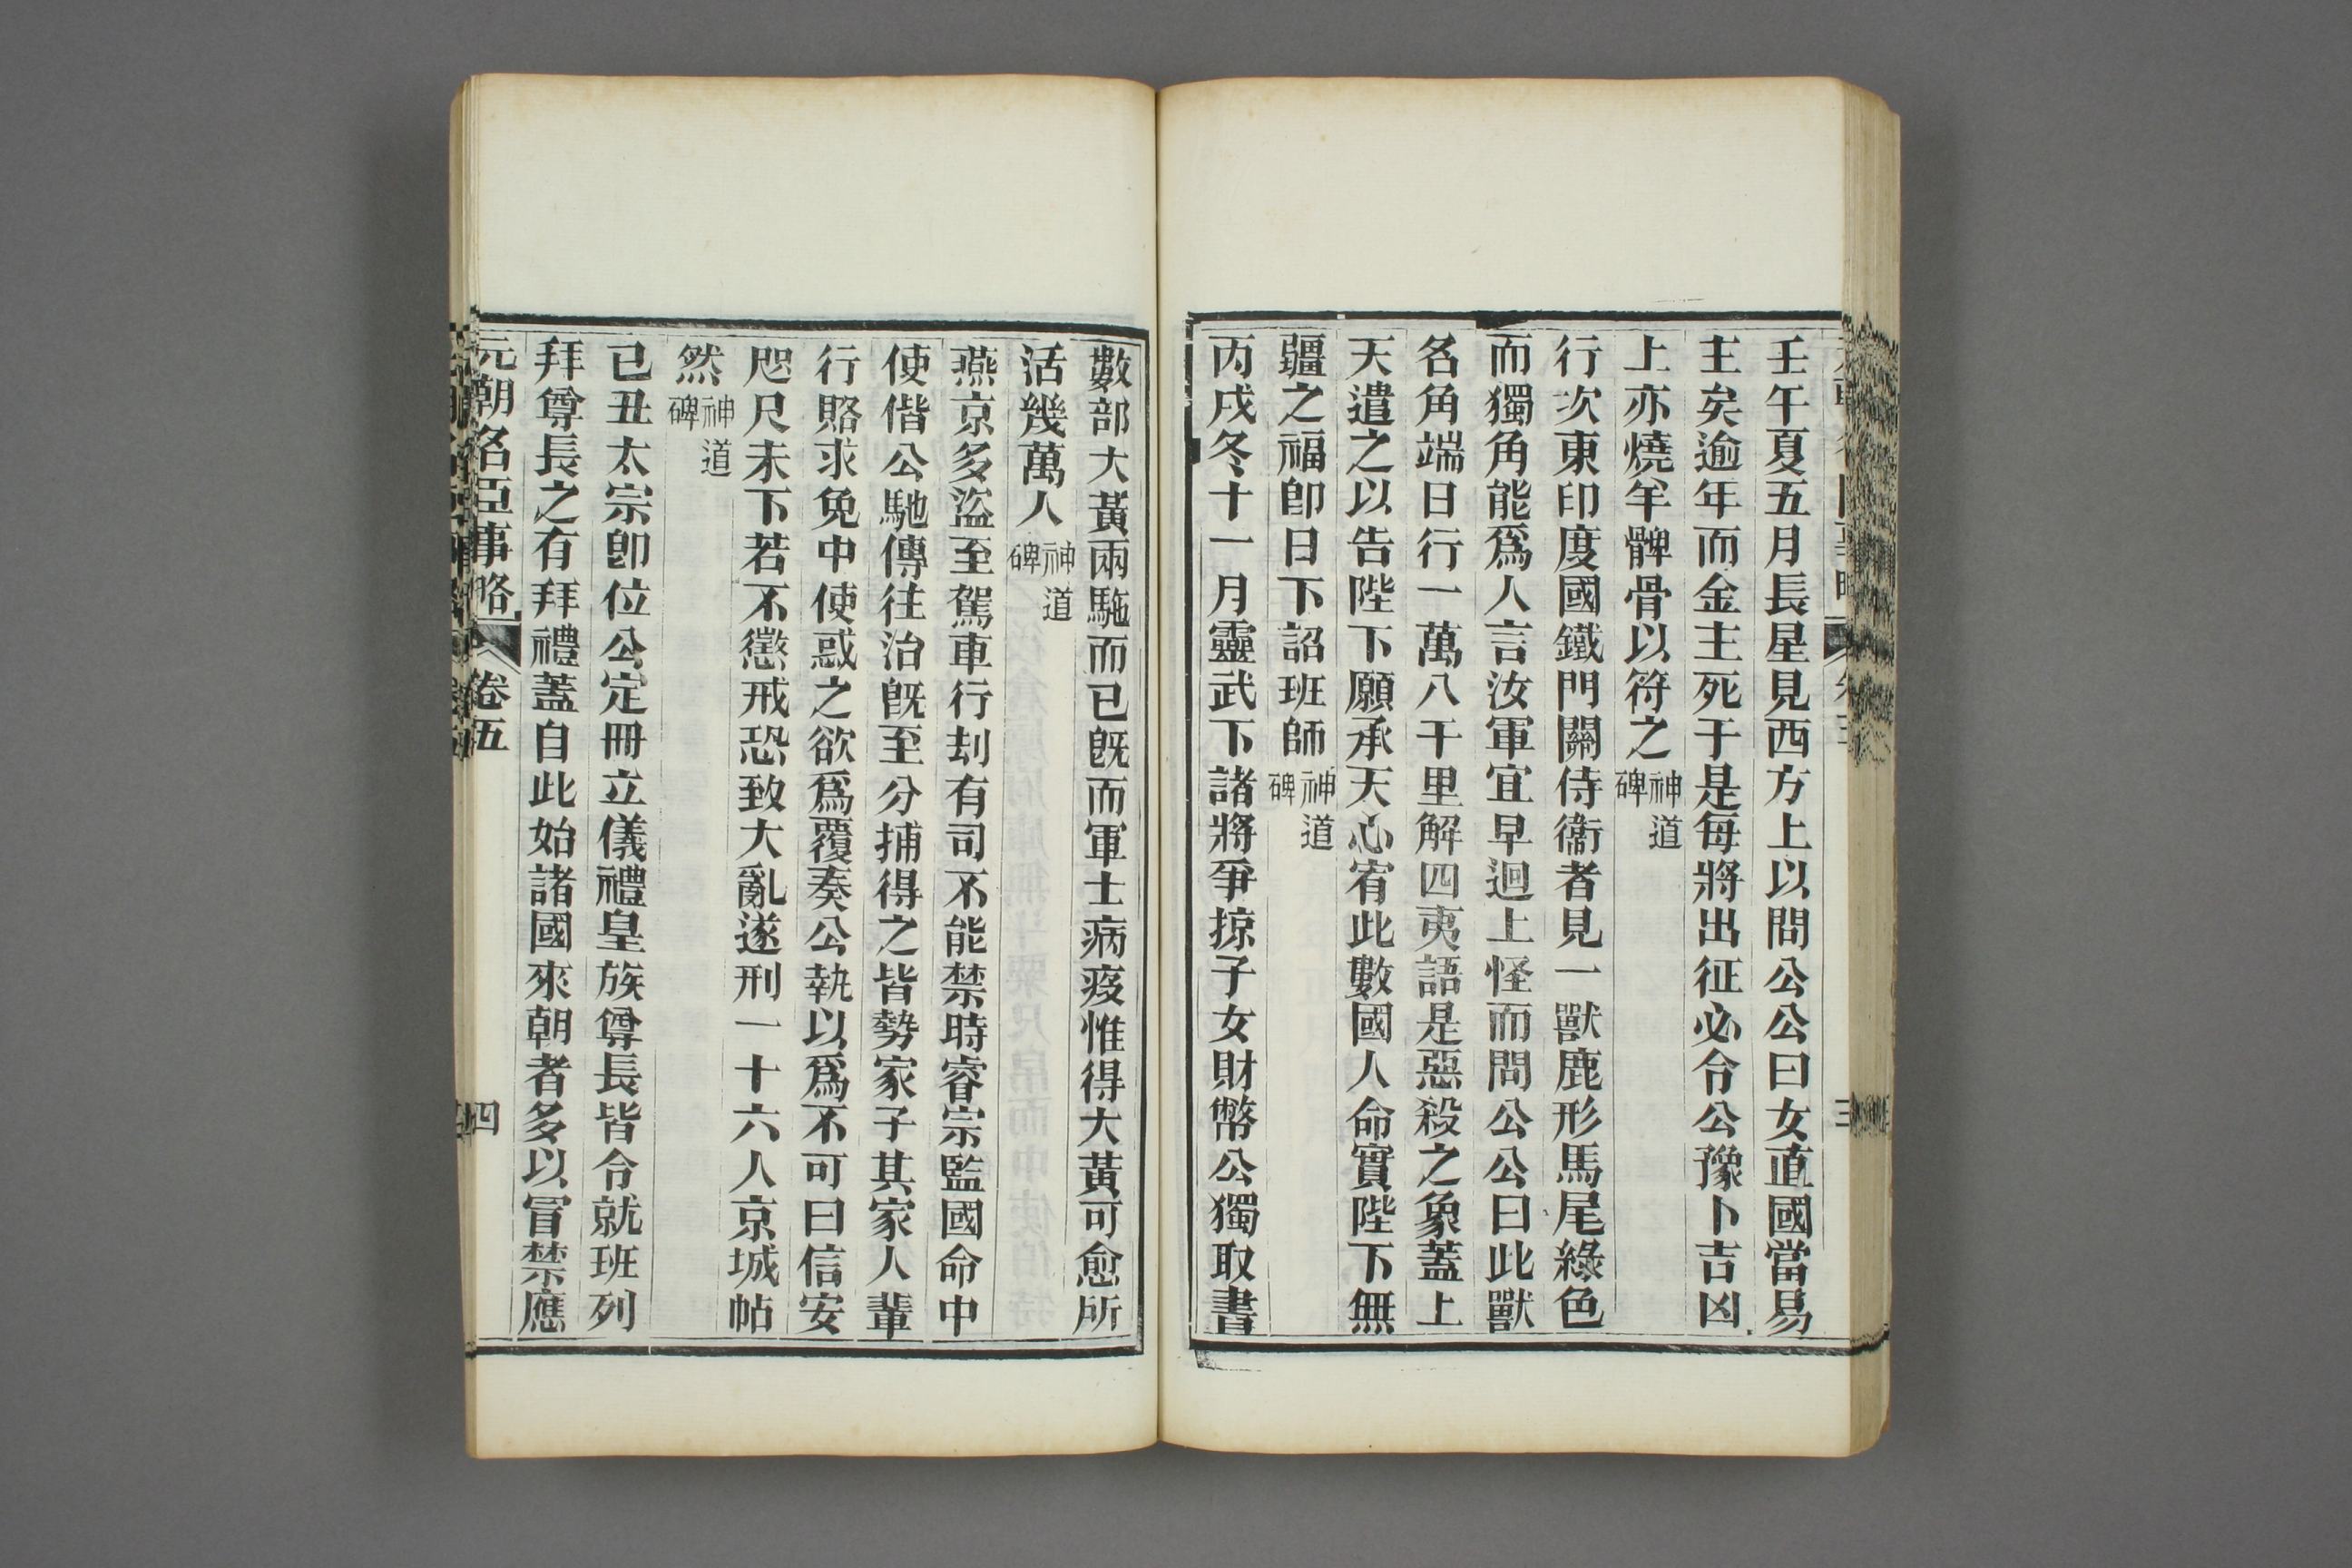 壬午夏五月長星見西方上以問公公曰女直國當易
主矣逾年而金主死于是每將出征必令公豫卜吉凶
上亦燒羊髀骨以符之神道碑
行次東印度國鐵門關侍衞者見一獸鹿形馬尾綠色
而獨角能爲人言汝軍宜早迴上怪而問公公曰此獸
名角端日行一萬八千里解四夷語是惡殺之象蓋上
天遣之以告陛下願承天心宥此數國人命實陛下無
疆之福卽日下詔班師神道碑
丙戌冬十一月靈武下諸將爭掠子女財幣公獨取書
數部大黃兩駞而已旣而軍士病疫惟得大黃可愈所
活幾萬人神道碑
燕京多盜至駕車行刦有司不能禁時睿宗監國命中
使偕公馳傳往治旣至分捕得之皆勢家子其家人輩
行賂求免中使惑之欲爲覆奏公執以爲不可曰信安
咫尺未下若不懲戒恐致大亂遂刑一十六人京城帖
然神道碑
已丑太宗卽位公定冊立儀禮皇族尊長皆令就班列
拜尊長之有拜禮蓋自此始諸國來朝者多以冒禁應
元朝名臣事略
卷五
四